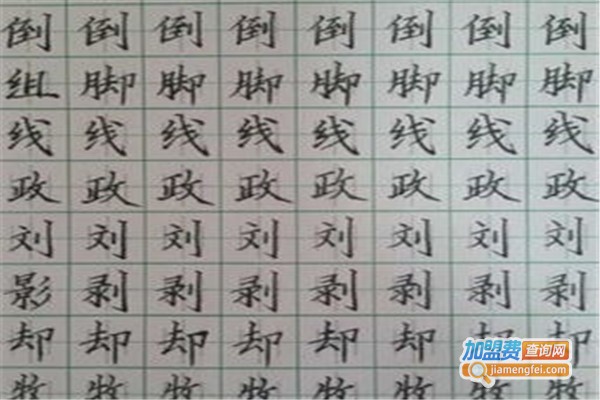 倒 倒 倒 倒 倒 倒 倒 倒
组 脚 脚 脚 脚 脚 脚 脚
线 线 线 线 线 线 线 线
政 政 政 政 政 政 政 政
刘 刘 刘 刘 刘 刘 刘 刘
影 剥 剥 剥 剥 剥 剥 剥
却 却 却 却 却 却 却 却
牧 牧 牧 牧 牧 牧
加盟费查询网
jiamengfei.com